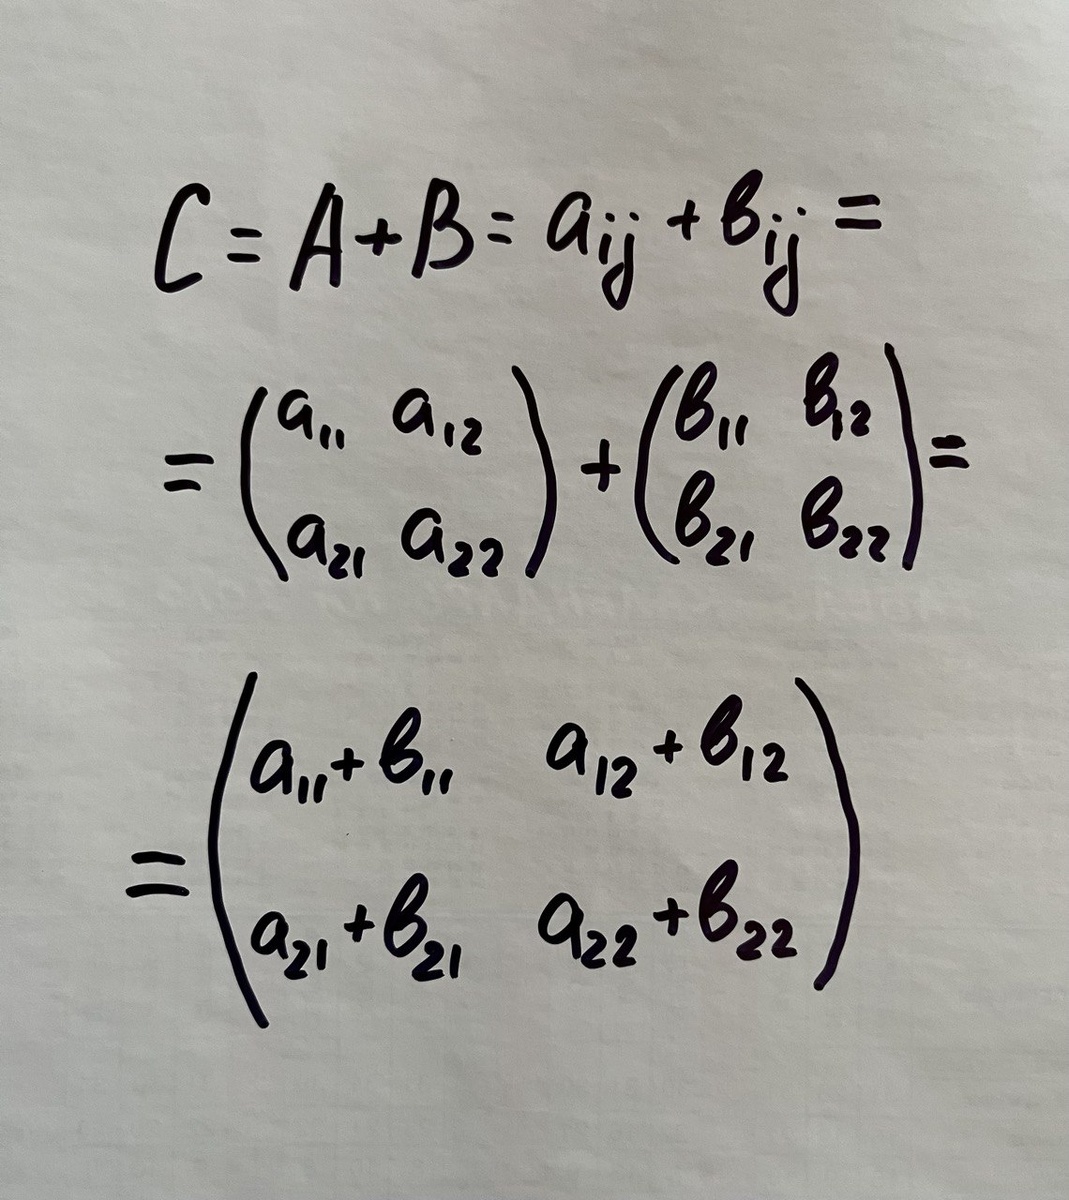 C = A + B = aᵢⱼ + bᵢⱼ =
= (a₁₁ a₁₂
a₂₁ a₂₂) + (b₁₁ b₁₂
b₂₁ b₂₂) =
= (a₁₁ + b₁₁ a₁₂ + b₁₂
a₂₁ + b₂₁ a₂₂ + b₂₂)